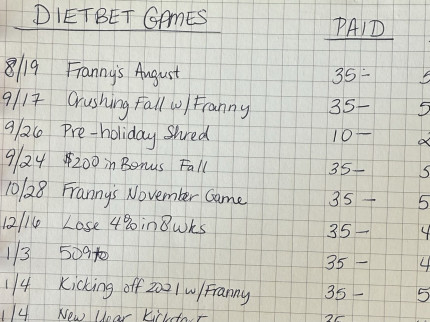 DIETBET GAMES PAID
8/19 Franny's August 35- 5
9/17 Crushing Fall w/Franny 35- 5
9/26 Pre-holiday Shred 10- 2
9/24 $200 in Bonus Fall 35- 5
10/28 Franny's November Game 35- 5
12/16 Lose 4% in 8 wks 35- 4
1/3 35- 4
1/4 Kicking off 2021 w/Franny 35- 5
1/4 New Year 35